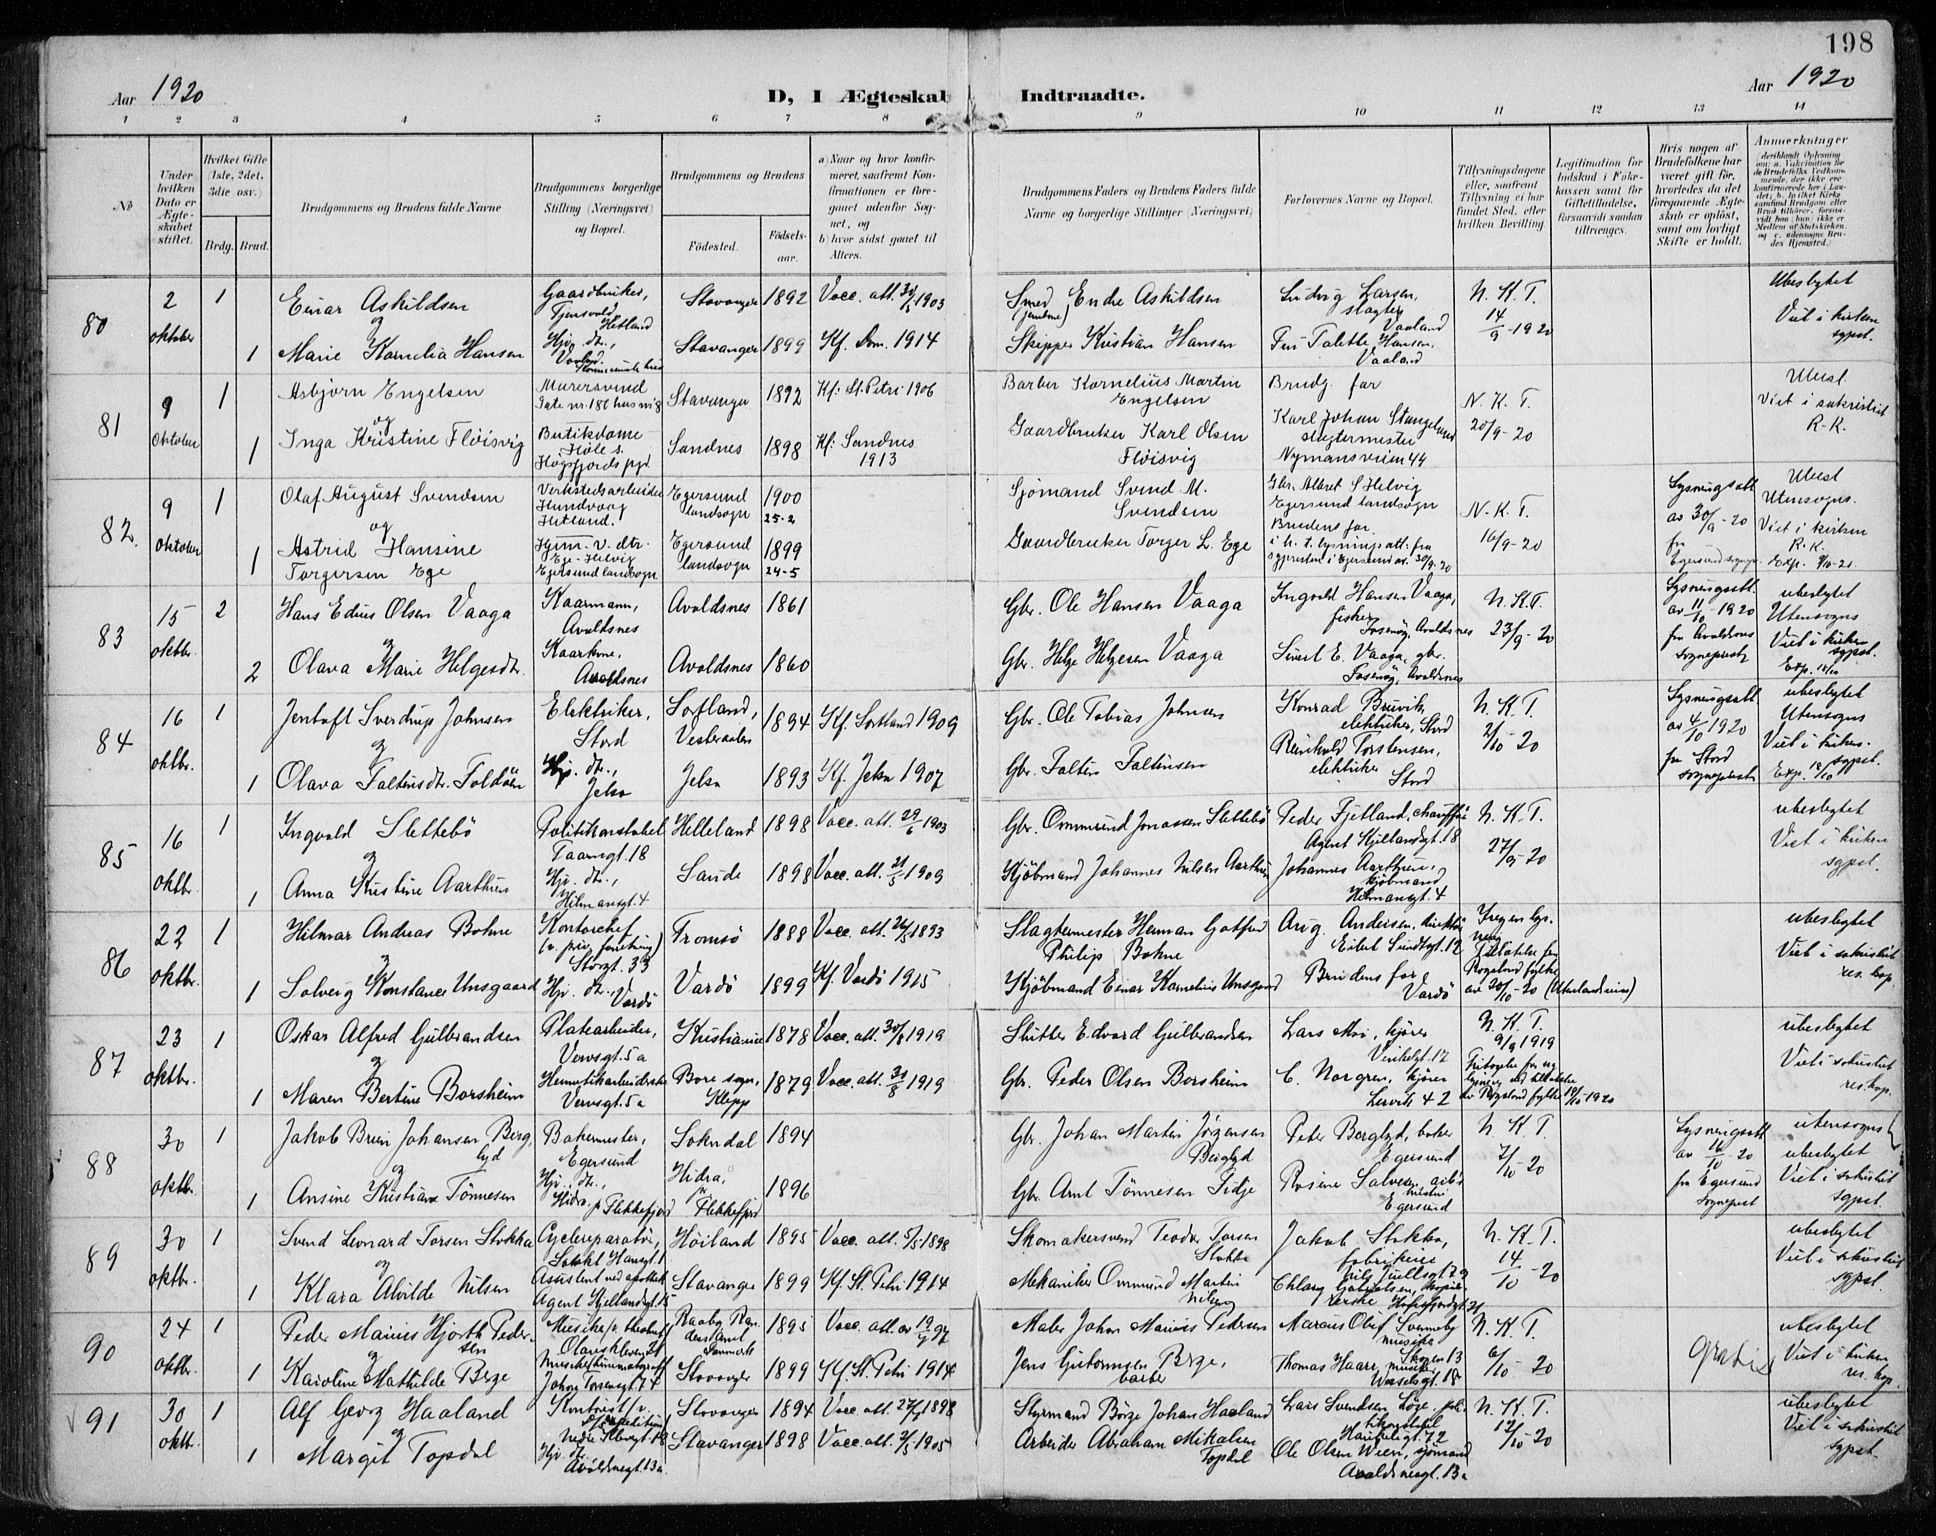 198
Aar 1920
D, I Ægteskab Indtraadte.
Aar 1920
1 2 3 4 5 6 7 8 9 10 11 12 13 14
№
Under hvilken Dato er Ægteskabet stiftet.
Hvilket Gifte (1ste, 2det, 3die osv.)
Brdg. Brud.
Brudgommens og Brudens fulde Navne
Brudgommens borgerlige Stilling (Næringsvei) og Bopæl.
Brudgommens og Brudens
Fødested.
Fødselsaar.
a) Naar og hvor konfirmeret, saafremt Konfirmationen er foregaaet udenfor Sognet, og
b) hvor sidst gaaet til Alters.
Brudgommens Faders og Brudens Faders fulde Navne og borgerlige Stillinger (Næringsvei)
Forlovernes Navne og Bopæl.
Tillysningsdagene eller, saafremt Tillysning ei har fundet Sted, efter hvilken Bevilling.
Legitimation for Indskud i Enkekassen samt for Giftetilladelse, forsaavidt saadan tiltrænges.
Hvis nogen af Brudefolkene har været gift før, hvorledes da det foregaaende Ægteskab er opløst, samt om lovligt Skifte er holdt.
Anmerkninger
80
2 oktober
1
Einar Askildsen
Gaardbruker, Tjensvold, Hetland
Stavanger 1892
Vacc. att. 1903
Smed Endre Askildsen
Ludvig Larsen, slagter Vaaland
N. K. T. 14/9-1920
Ubeslegtet
Viet i kirken sgpst.
og
1
Marie Kornelia Hansen
Hjv. dtr., Vaaland
Stavanger 1899
Kf. Dom. 1914
Skipper Kristian Hansen
Fru Talette Hansen, Vaaland
81
9 oktober
1
Asbjørn Engelsen
Murersvend
Gate nr. 186 hus nr 8
Stavanger 1892
Kf: St. Petri 1906
Barber Kornelius Martin Engelsen
Brudg. far
N. K. T. 20/9-20
Ubesl.
Viet i sakristiet
R-K.
og
1
Inga Kristine Fløisvig
Butikdame
Høle s. Høgsfjords pgd
Sandnes 1898
Kf: Sandnes 1913
Gaardbruker Karl Olsen Fløisvig
Karl Johan Stangeland slagtermester Nymansveien 44
82.
9 oktober
1
Olaf August Svendsen
Verkstedsarbeider Hundvaag Hetland.
Egersund landsogn 1900 25-2
Sjømand Svend M. Svendsen
Gbr. Albret S Helvig Egersund landsogn
N-K. T. 16/9-20
Lysningsatt av 30/9-20 fra Egersund sognepr.
Ubesl
Utensogns.
Viet i kirken
R-K.
Exp. 9/10-20.
og
1
Astrid Hansine Torgersen Ege
Hjem. v. dtr. Ege-Helvig Egersund landsogn
Egersund landsogn 1899 24-5
Gaardbruker Torger L. Ege
Brudens far
83
15 oktbr.
2
Hans Edius Olsen Vaaga
Kaarmann, Avaldsnes
Avaldsnes 1861
Gbr. Ole Hansen Vaaga
Ingvald Hansen Vaaga, fisker Fosenøy, Avaldsnes
N. K. T. 23/9-20
Lysningsatt. av 11/10-1920 fra Avaldsnes sogneprest
ubeslegtet
Utensogns
Viet i kirken sgpst.
2
Olava Marie Helgesdtr.
Kaarkone, Avaldsnes
Avaldsnes 1860
Gbr. Helge Helgesen Vaaga
Sivert E. Vaaga, gbr. Fosenøy, Avaldsnes
84
16 oktbr.
1
Jentoft Sverdrup Johnsen
Elektriker, Stord
Sortland, Vesteraalen 1894
Kf. Sortland 1909
Gbr. Ole Tobias Johnsen
Konrad Bruvik, elektriker, Stord
N. K. T. 2/10-20
Lysningsatt av 4/10 1920 fra Stord sogneprest
ubeslegtet
Utensogns
Viet i kirken. sgpst.
og
1
Olava Faltinsdtr. Foldøen
Hjv. dtr., Jelsa
Jelsa 1893
Kf. Jelsa 1907
Gbr. Faltin Faltinsen
Reinhold Torstensen, elektriker Stord
85
16 oktbr.
1
Ingvald Slettebø
Politikonstabel Taarngt. 18
Helleland 1898
Vacc. att. 29/6 1903
Gbr. Ommund Jonassen Slettebø
Peder Fjetland, chauffør Agent Kjellandsgt. 18
N. K. T. 27/9-20
ubeslegtet
Viet i kirken sgpst.
og
1
Anna Kristine Aarthun
Hjv. dtr., Hilmansgt. 4
Sande 1898
Vacc. att. 21/5 1909
Kjøbmand Johannes Nilsen Aarthun
Johannes Aarthun, kjøbmand Hilmansgt. 4
86
22 oktbr.
1
Hilmar Andreas Bohne
Kontorchef (v. priv. forretning) Storgt. 33
Tromsø 1888
Vacc. att. 26/5 1893
Slagtermester Herman Gotfred Philip Bohne
Aug. Andersen, direktør Eilert Sundtsgt. 12
Ingen lysning
Tilladelse fra Rogaland fylke av 20/10-20
ubeslegtet
Viet i sakristiet res. kap.
og
1
Solveig Konstance Unsgaard
Hjv. dtr., Vardø
Vardø 1899
Kf. Vardø 1915
Kjøbmand Einar Kornelius Unsgaard
Brudens far Vardø
87
23 oktbr.
1
Oskar Alfred Gulbrandsen
Platearbeider, Vervsgt. 5a
Kristiania 1878
Vacc. att. 30/8 1919
Sliter Edvard Gulbrandsen
Lars Moi, kjører
N. K. T. 9/9 1919
ubeslegtet
Viet i sakristiet res. kap.
og
1
Maren Bertine Borsheim
Hermetikarbeiderske Vervsgt. 5a
Bore sogn, Klepp 1879
Vacc. att. 30/8 1919
Gbr. Peder Olsen Borsheim
C. Norgren, kjører Lervik 42
88
30 oktbr.
1
Jakob Brun Johansen Berglyd
Bakermester, Egersund
Sokndal 1894
Gbr. Johan Martin Jørgensen Berglyd
Peter Berglyd, baker Egersund
N. K. T. 2/10-20
Lysningsatt av 16/10-20 fra Egersund sogneprest
utensogns
ubeslegtet
Viet i sakristiet sgpst.
og
1
Ansine Kristiane Tønnesen
Hjv. dtr., Hidra pr Flekkefjord
Hidra, pr. Flekkefjord 1896
Gbr. Arnt Tønnesen Eidje
Egersund
89
30 oktbr.
1
Svend Leonard Torsen Stokka
Cyclereparatør,
Høiland 1895
Vacc. att. 5/5-1898
Skomakersvend Teodor Torsen Stokka
Jakob Stokka,
N. K. T. 14/10-20
ubeslegtet
Viet i sakristiet sgpst.
og
1
Klara Alvilde Nilsen
Assistent ved apothek Agent Kjellandsgt. 15
Stavanger 1899
Kf. St. Petri 1914
Mekaniker Ommund Martin Nilsen
90
24 oktbr.
1
Peder Marius Hjorth Pedersen
Musiker v. theatret Olavskleven 21
Raaby Randers amt Danmark 1895
Vacc. att. av 19/9 97
Maler Johan Marius Pedersen
Marcus Olif Svenneby musiker
N. K. T. 6/10-20
Gratis
ubeslegtet
Viet i kirken res. kap.
og
1
Karoline Mathilde Berge
Stavanger 1899
Kf. St. Petri 1914
Jens Gutormsen Berge, barber
Thomas Haar, musiker
91
30 oktb.
1
Alf Georg Haaland
Stavanger 1894
Vacc. att. 1898
Styrmand Børge Johan Haaland
Lars Svendsen Løge, politikonstabel Haukeligt. 72
N. K. T. 12/10-20
ubeslegtet
Viet i sakristiet sgpst.
og
1
Margit Topdal
Hjv. dtr. Avaldsnesgt. 13a.
Stavanger 1898
Vacc. att. 1905
Arbeider Abraham Mikalsen Topdal
Ole Olsen Ween, sjømand Avaldsnesgt. 13a